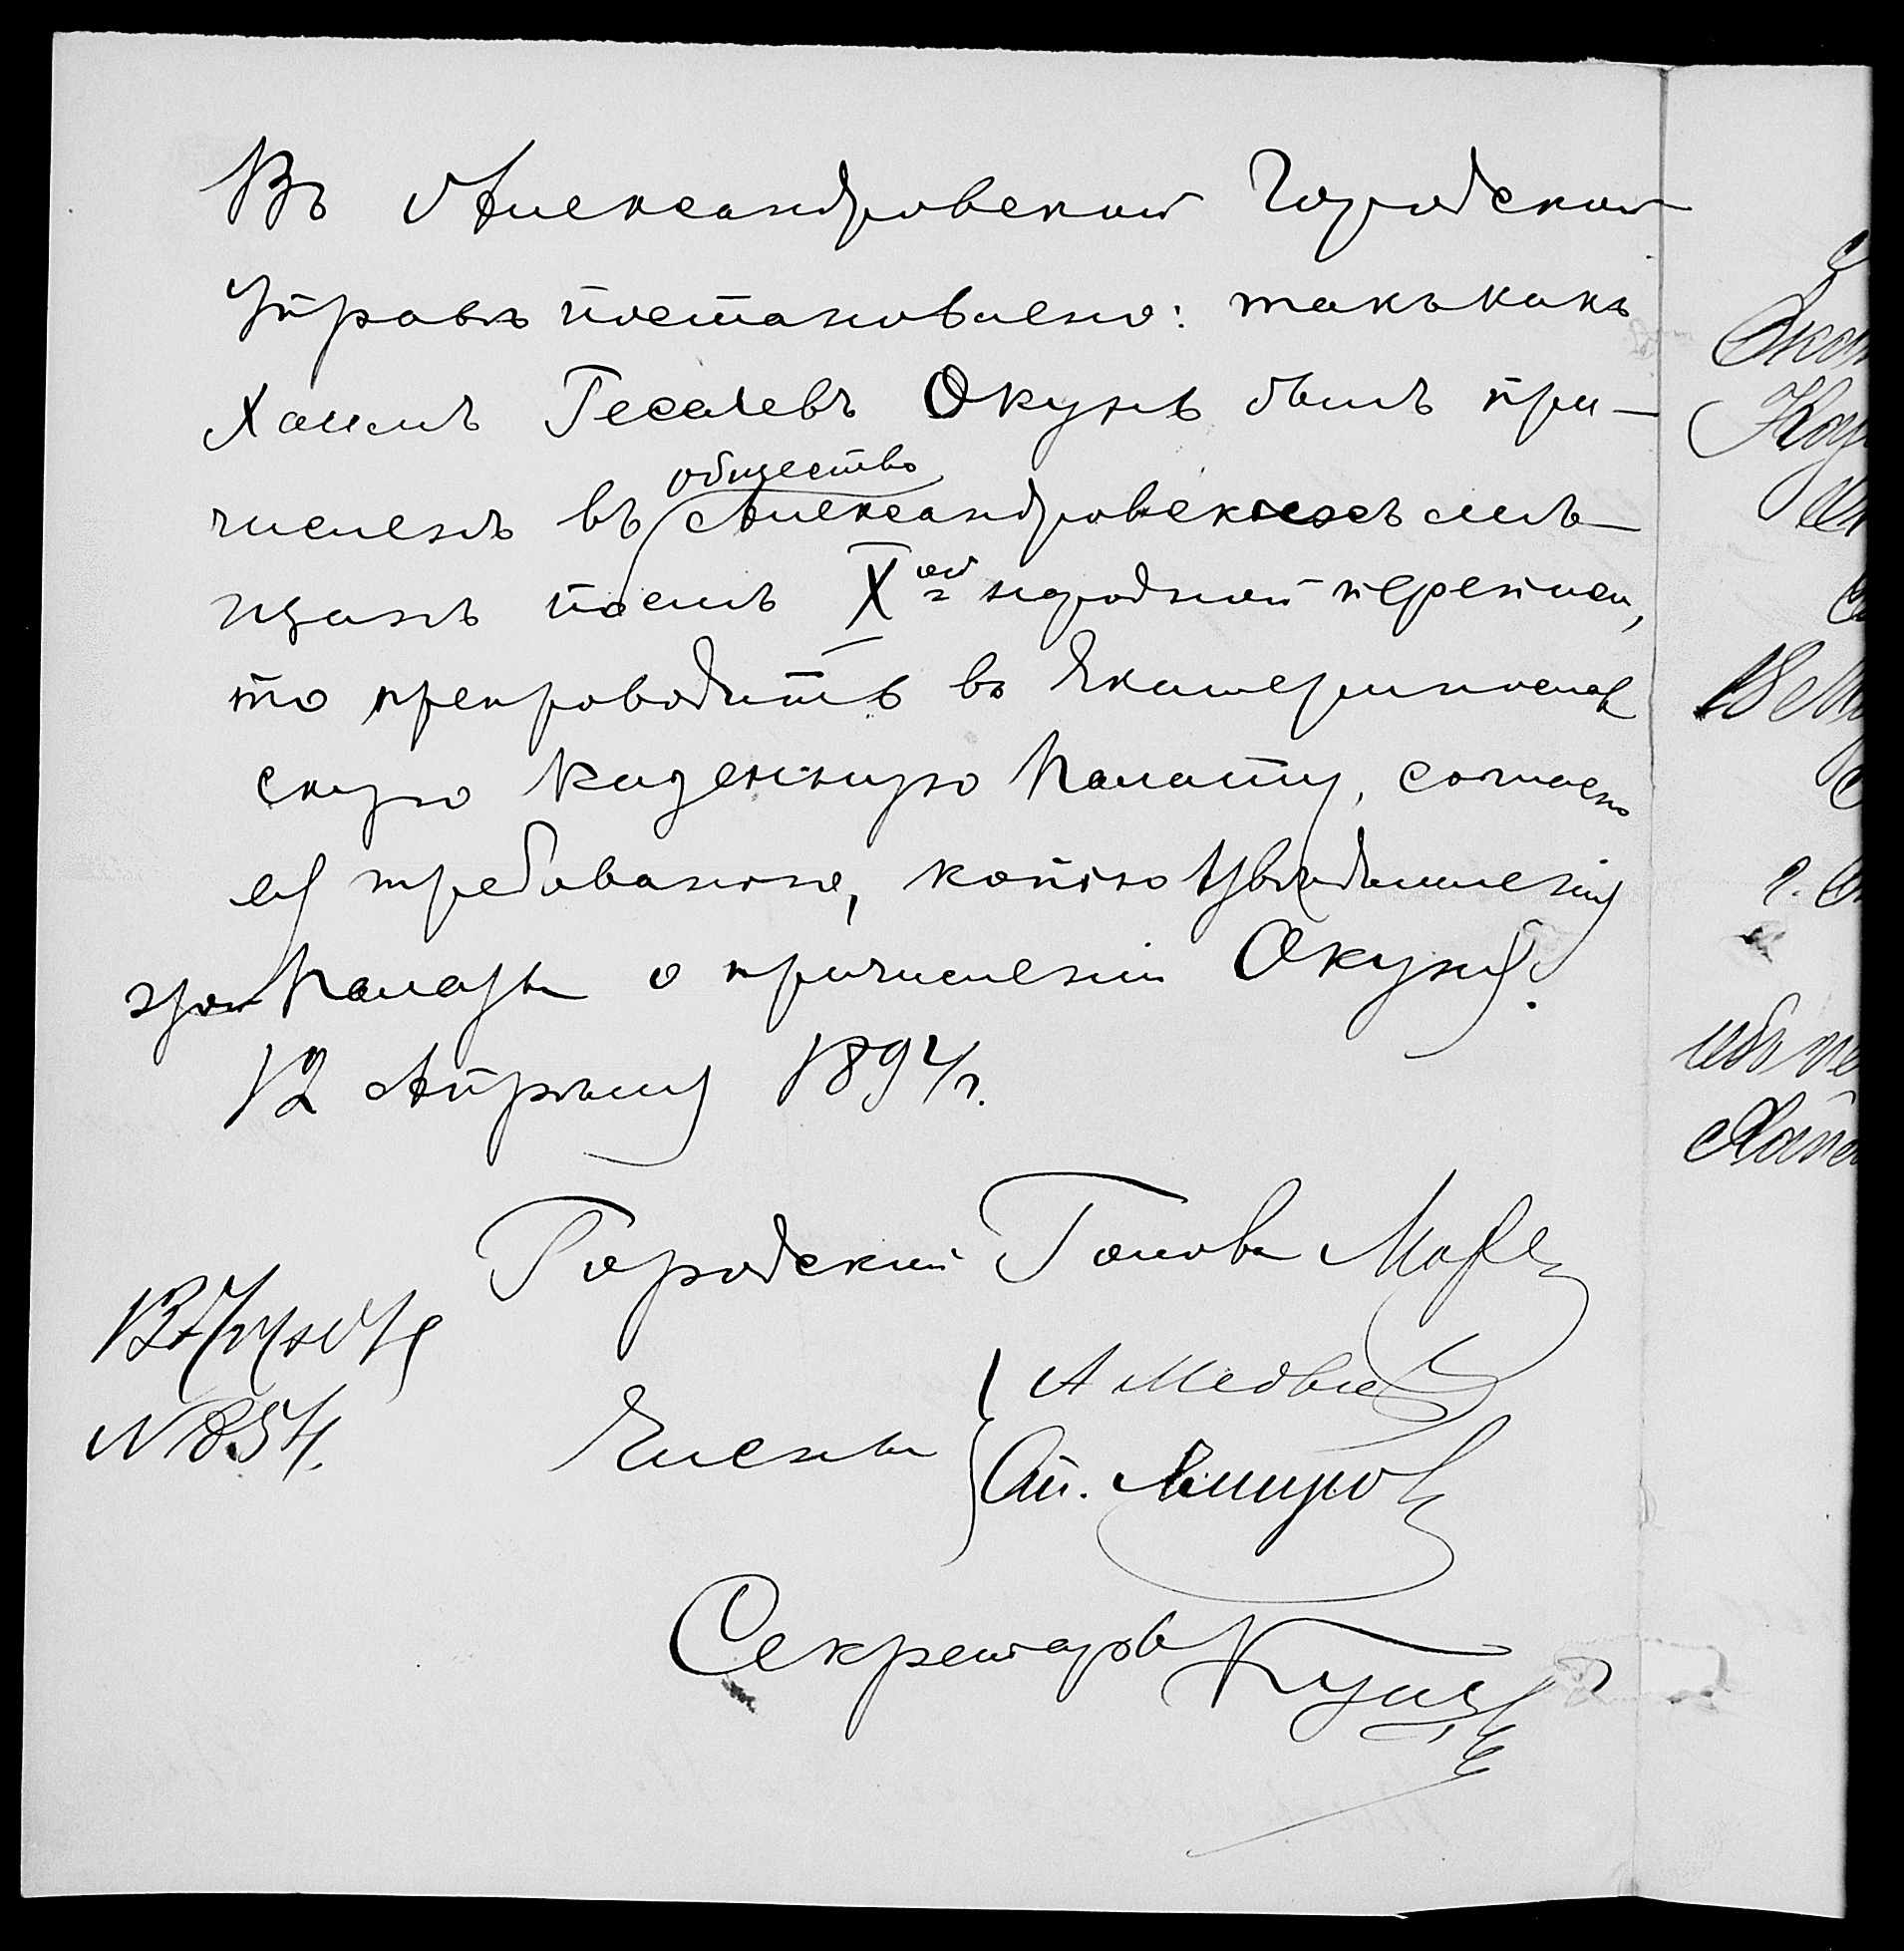 Въ Александровской Городской
Управѣ постановлено: такъ какъ
Хаимъ Гесалевъ Окунь былъ при-
численъ въ общество Александровскихъ мѣ-
щанъ послѣ Xой народной переписи,
то препроводить въ Екатеринослав
скую Казенную Палату, согласно
ея требованію, копію увѣдомленія
этой Палаты о причисленіи Окуня.
12 Апрѣля 1894 г.
Городской Голова
Члены
А Медвѣ
Секретарь
№ 854.